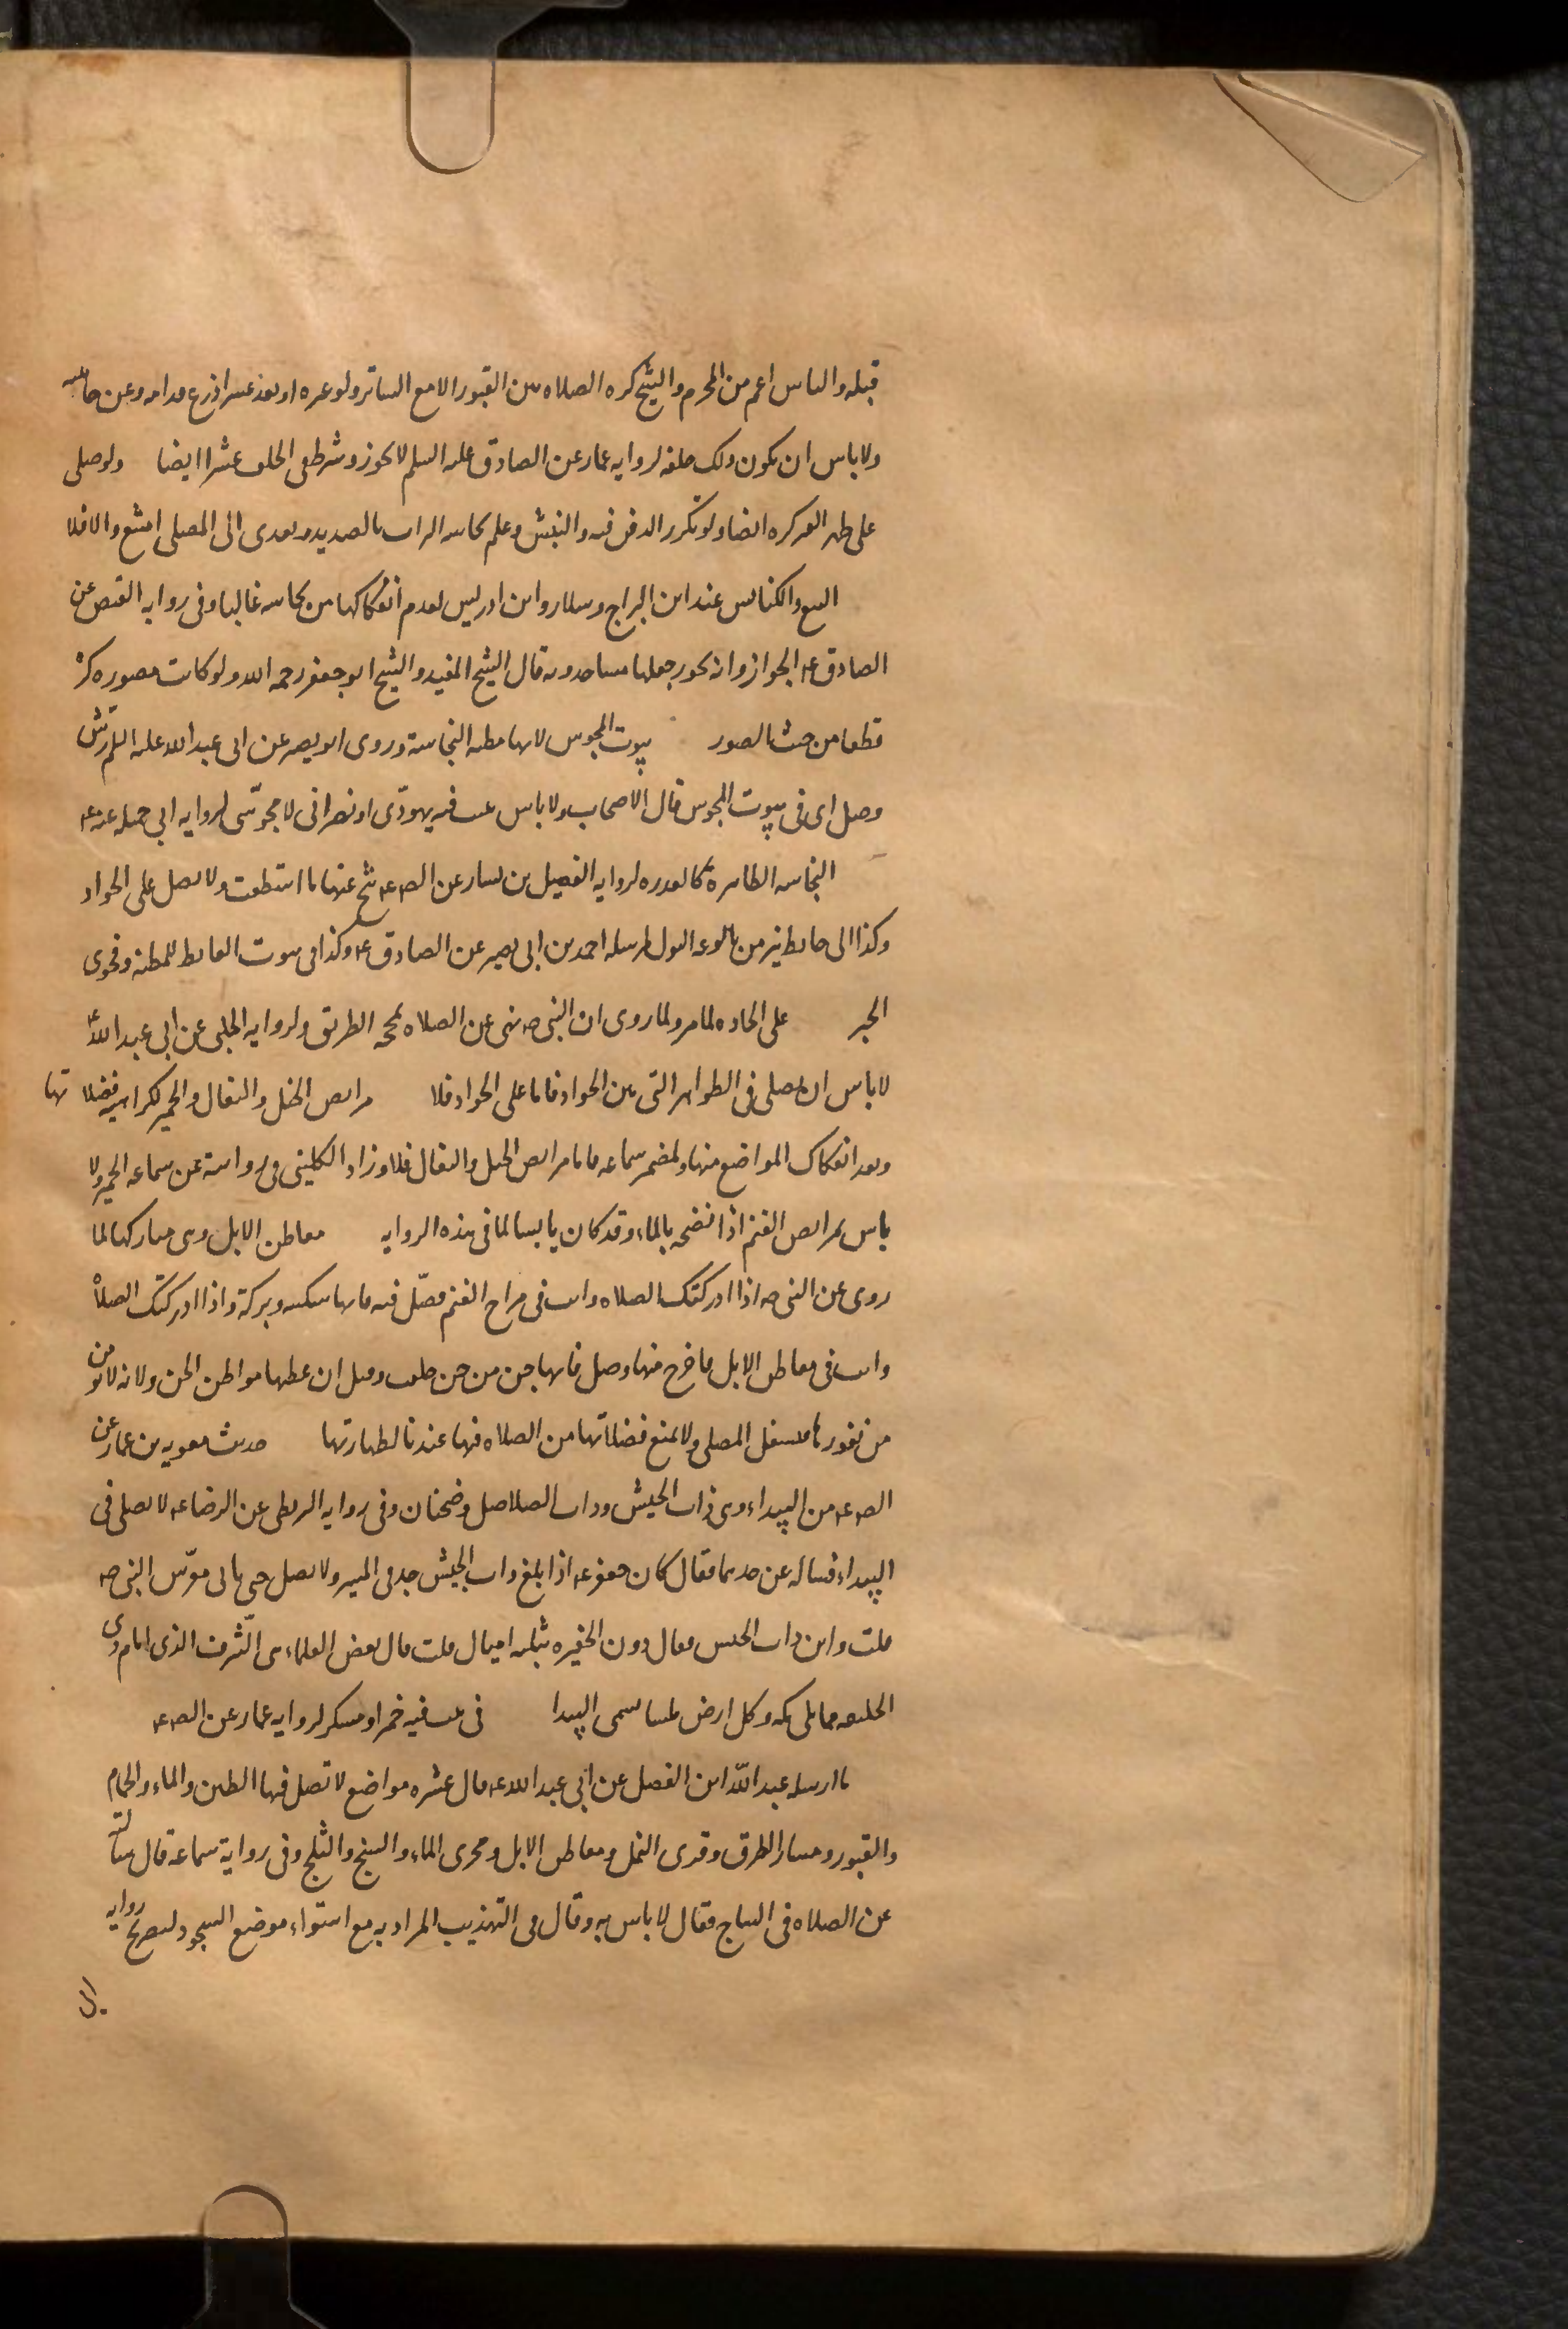 قبله والباس اعم من المحرم والشيخ كره الصلاه بين القبور الا مع الساتر ولو عنزه او بعد عشر اذرع قدامه وعن جانبيه
ولا باس ان يكون ذلك خلفه لروايه عمار عن الصادق عليه السلم لا يجوز وشرط في الخلف عشرا ايضا ولو صلى
على ظهر القبر كره ايضا ولو تكرر الدفن فيه والنبش وعلم نجاسه التراب بالصديد وتعدى الى المصلى امتنع والا فلا
البيع والكنائس عند ابن البراج وسلار وابن ادريس لعدم انفكاكها من نجاسه غالبا وفي روايه العيص عن
الصادق ع الجواز وانه يجوز جعلها مساجد وبه قال الشيخ المفيد والشيخ ابو جعفر رحمه الله ولو كانت مصوره كره
قطعا من حيث الصور بيوت المجوس لانها مظنه النجاسة وروى ابو بصير عن ابي عبد الله عليه السلم رش
وصل اى في بيوت المجوس قال الاصحاب ولا باس ببيت فيه يهودّى او نصرانى لا مجوسّى لروايه ابي جميله عنه ع
النجاسه الظاهره كالعذره لروايه الفضيل بن يسار عن الص ع تنح عنها ما استطعت ولا تصل على الجواد
وكذا الى حايط ينز من بالوعه البول لمرسله احمد بن ابي نصير عن الصادق ع وكذا في بيوت الغايط للمظنه وفحوى
الخبر على الجاده لما مر ولما روى ان النبي ص نهى عن الصلاه بمحجه الطريق ولروايه الحلبى عن ابي عبد الله ع
لا باس ان يصلى في الظواهر التى بين الجواد فاما على الجواد فلا مرابض الخيل والبغال والحمير لكراهيه فضلاتها
وبعد انفكاك المواضع منها ولمضمر سماعه فاما مرابض الخيل والبغال فلا وزاد الكلينى في روايته عن سماعه الحمير ولا
باس بمرابض الغنم اذا نضحه بالماء وقد كان يابسا لما في هذه الروايه معاطن الابل وهى مباركها لما
روى عن النبي ص اذا ادركتك الصلاه وانت في مراح الغنم فصّل فيه فانها سكينه وبركة واذا ادركتك الصلاة
وانت في معاطن الابل فاخرج منها وصل فانها جن من جن خلقت وقيل ان عطنها مواطن الجن ولانه لا يومن
من نفورها فيشغل المصلى ولا يمنع فضلاتها من الصلاه فيها عندنا لطهارتها حديث معويه بن عمار عن
الص ع من البيداء وهى ذات الجيش وذات الصلاصل وضجنان وفي روايه البزنطى عن الرضا ع لا تصلى في
البيداء فساله عن حدها فقال كان جعفر ع اذا بلغ ذات الجيش جد في المسير ولا يصلى حتى ياتى معرّس النبي ص
قلت واين ذات الجيش فقال دون الحفيره بثلثه اميال قلت قال بعض العلماء هى الّشرف الذى امام ذي
الحليفه مما يلى مكه وكل ارض ملسا تسمى البيدا في بيت فيه خمر او مسكر لروايه عمار عن الص ع
ما ارسله عبد الله ابن الفضل عن ابي عبد الله ع قال عشره مواضع لا تصل فيها الطين والماء والحمام
والقبور ومسان الطرق وقرى النمل ومعاطن الابل ومجرى الماء والسبخ والثلج وفي رواية سماعة قال سالته
عن الصلاه في السباخ فقال لا باس به وقال في التهذيب المراد به مع استواء موضع السجود لتصريح روايه
ابى